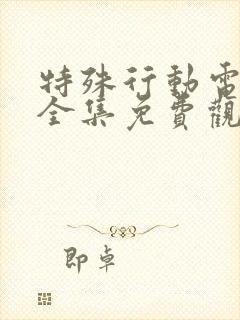 特殊行動電
全集免費觀
即卓